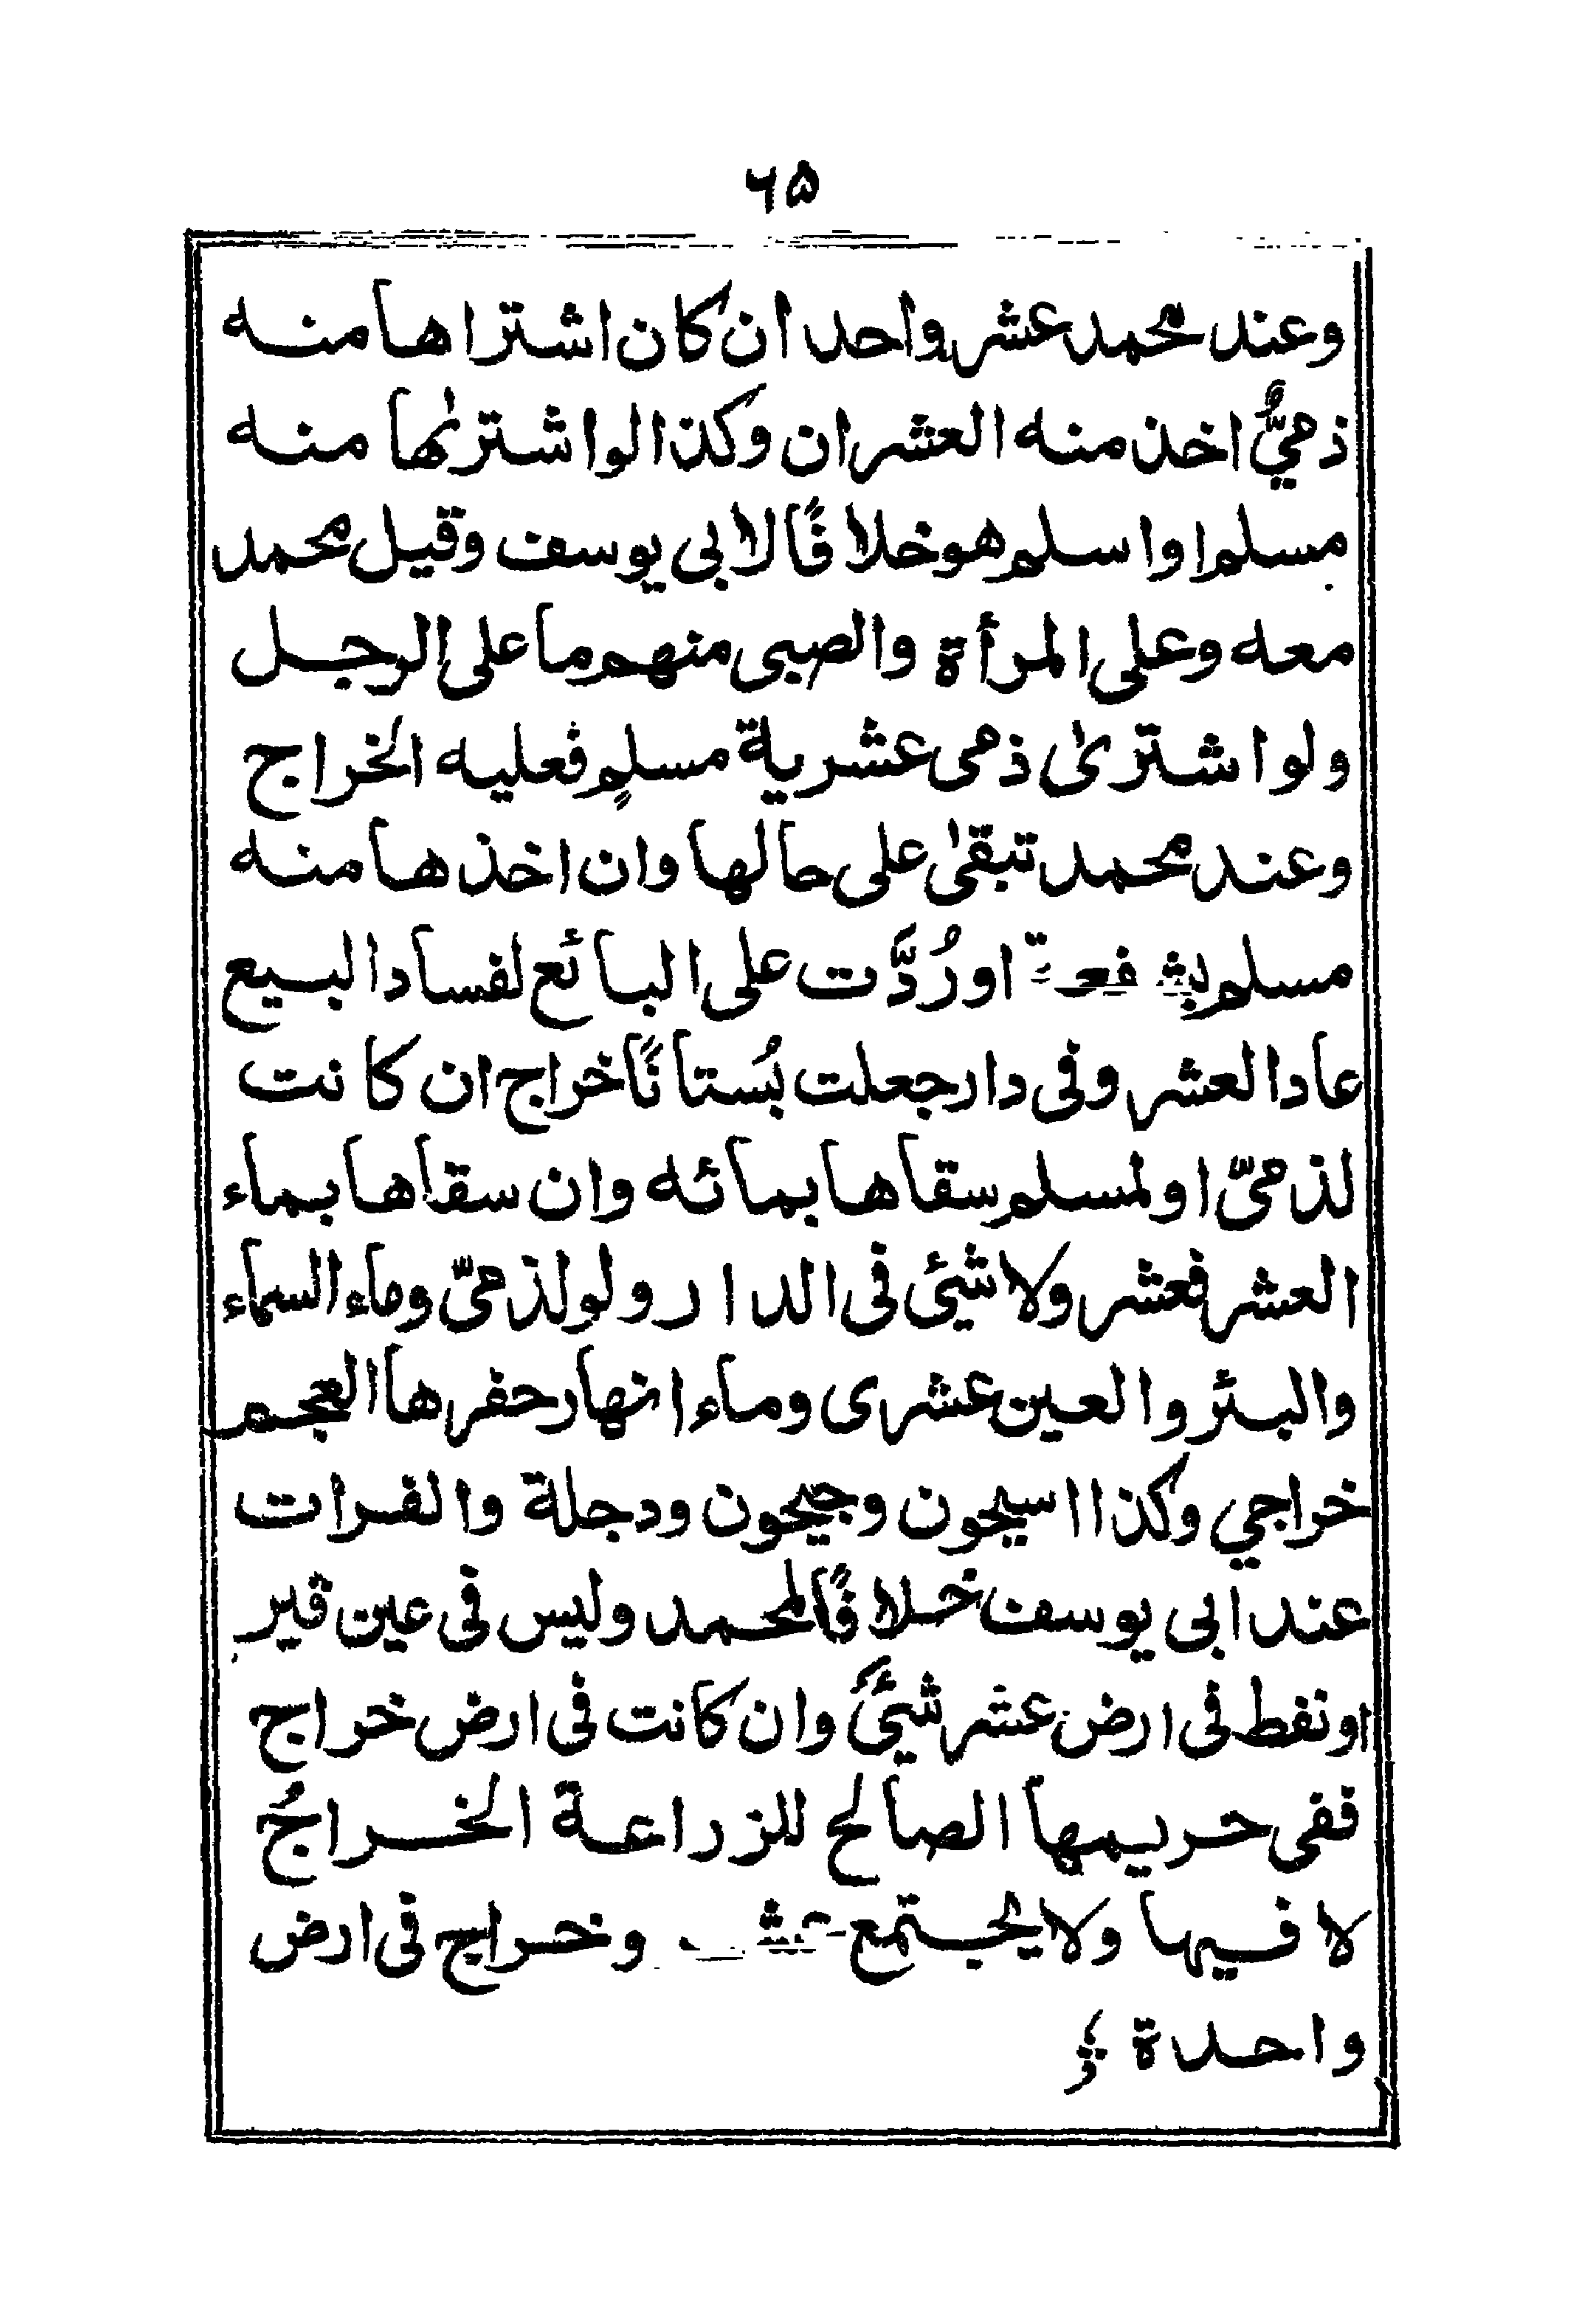 ۶۵
وعند محمد عشر واحد ان كان اشتراها منه
ذمىٌّ اخذ منه العشران وكذا لو اشترىٰها منه
مسلم او اسلم هو خلافًا لابى يوسف وقيل محمد
معه وعلى المرأة والصبى منهم ما على الرجل
ولو اشترىٰ ذمى عشرية مسلمٍ فعليه الخراج
وعند محمد تبقىٰ على حالها وان اخذها منه
مسلم بشفعة او رُدَّت على البائع لفساد البيع
عاد العشر وفى دار جعلت بُستانًا خراج ان كانت
لذمىّ او لمسلم سقاها بمائه وان سقاها بماء
العشر فعشر ولا شيئ فى الدار ولو لذمىّ وماء السماء
والبئر والعين عشرى وماء انهار حفرها العجم
خراجي وكذا اسيحون وجيحون ودجلة والفرات
عند ابى يوسف خلافًا لمحمد وليس فى عين قير
او نفط فى ارض عشر شيئٌ وان كانت فى ارض خراج
ففى حريمها الصالح للزراعة الخراجُ
لا فيها ولا يجتمع عشر وخراج فى ارض
واحدة